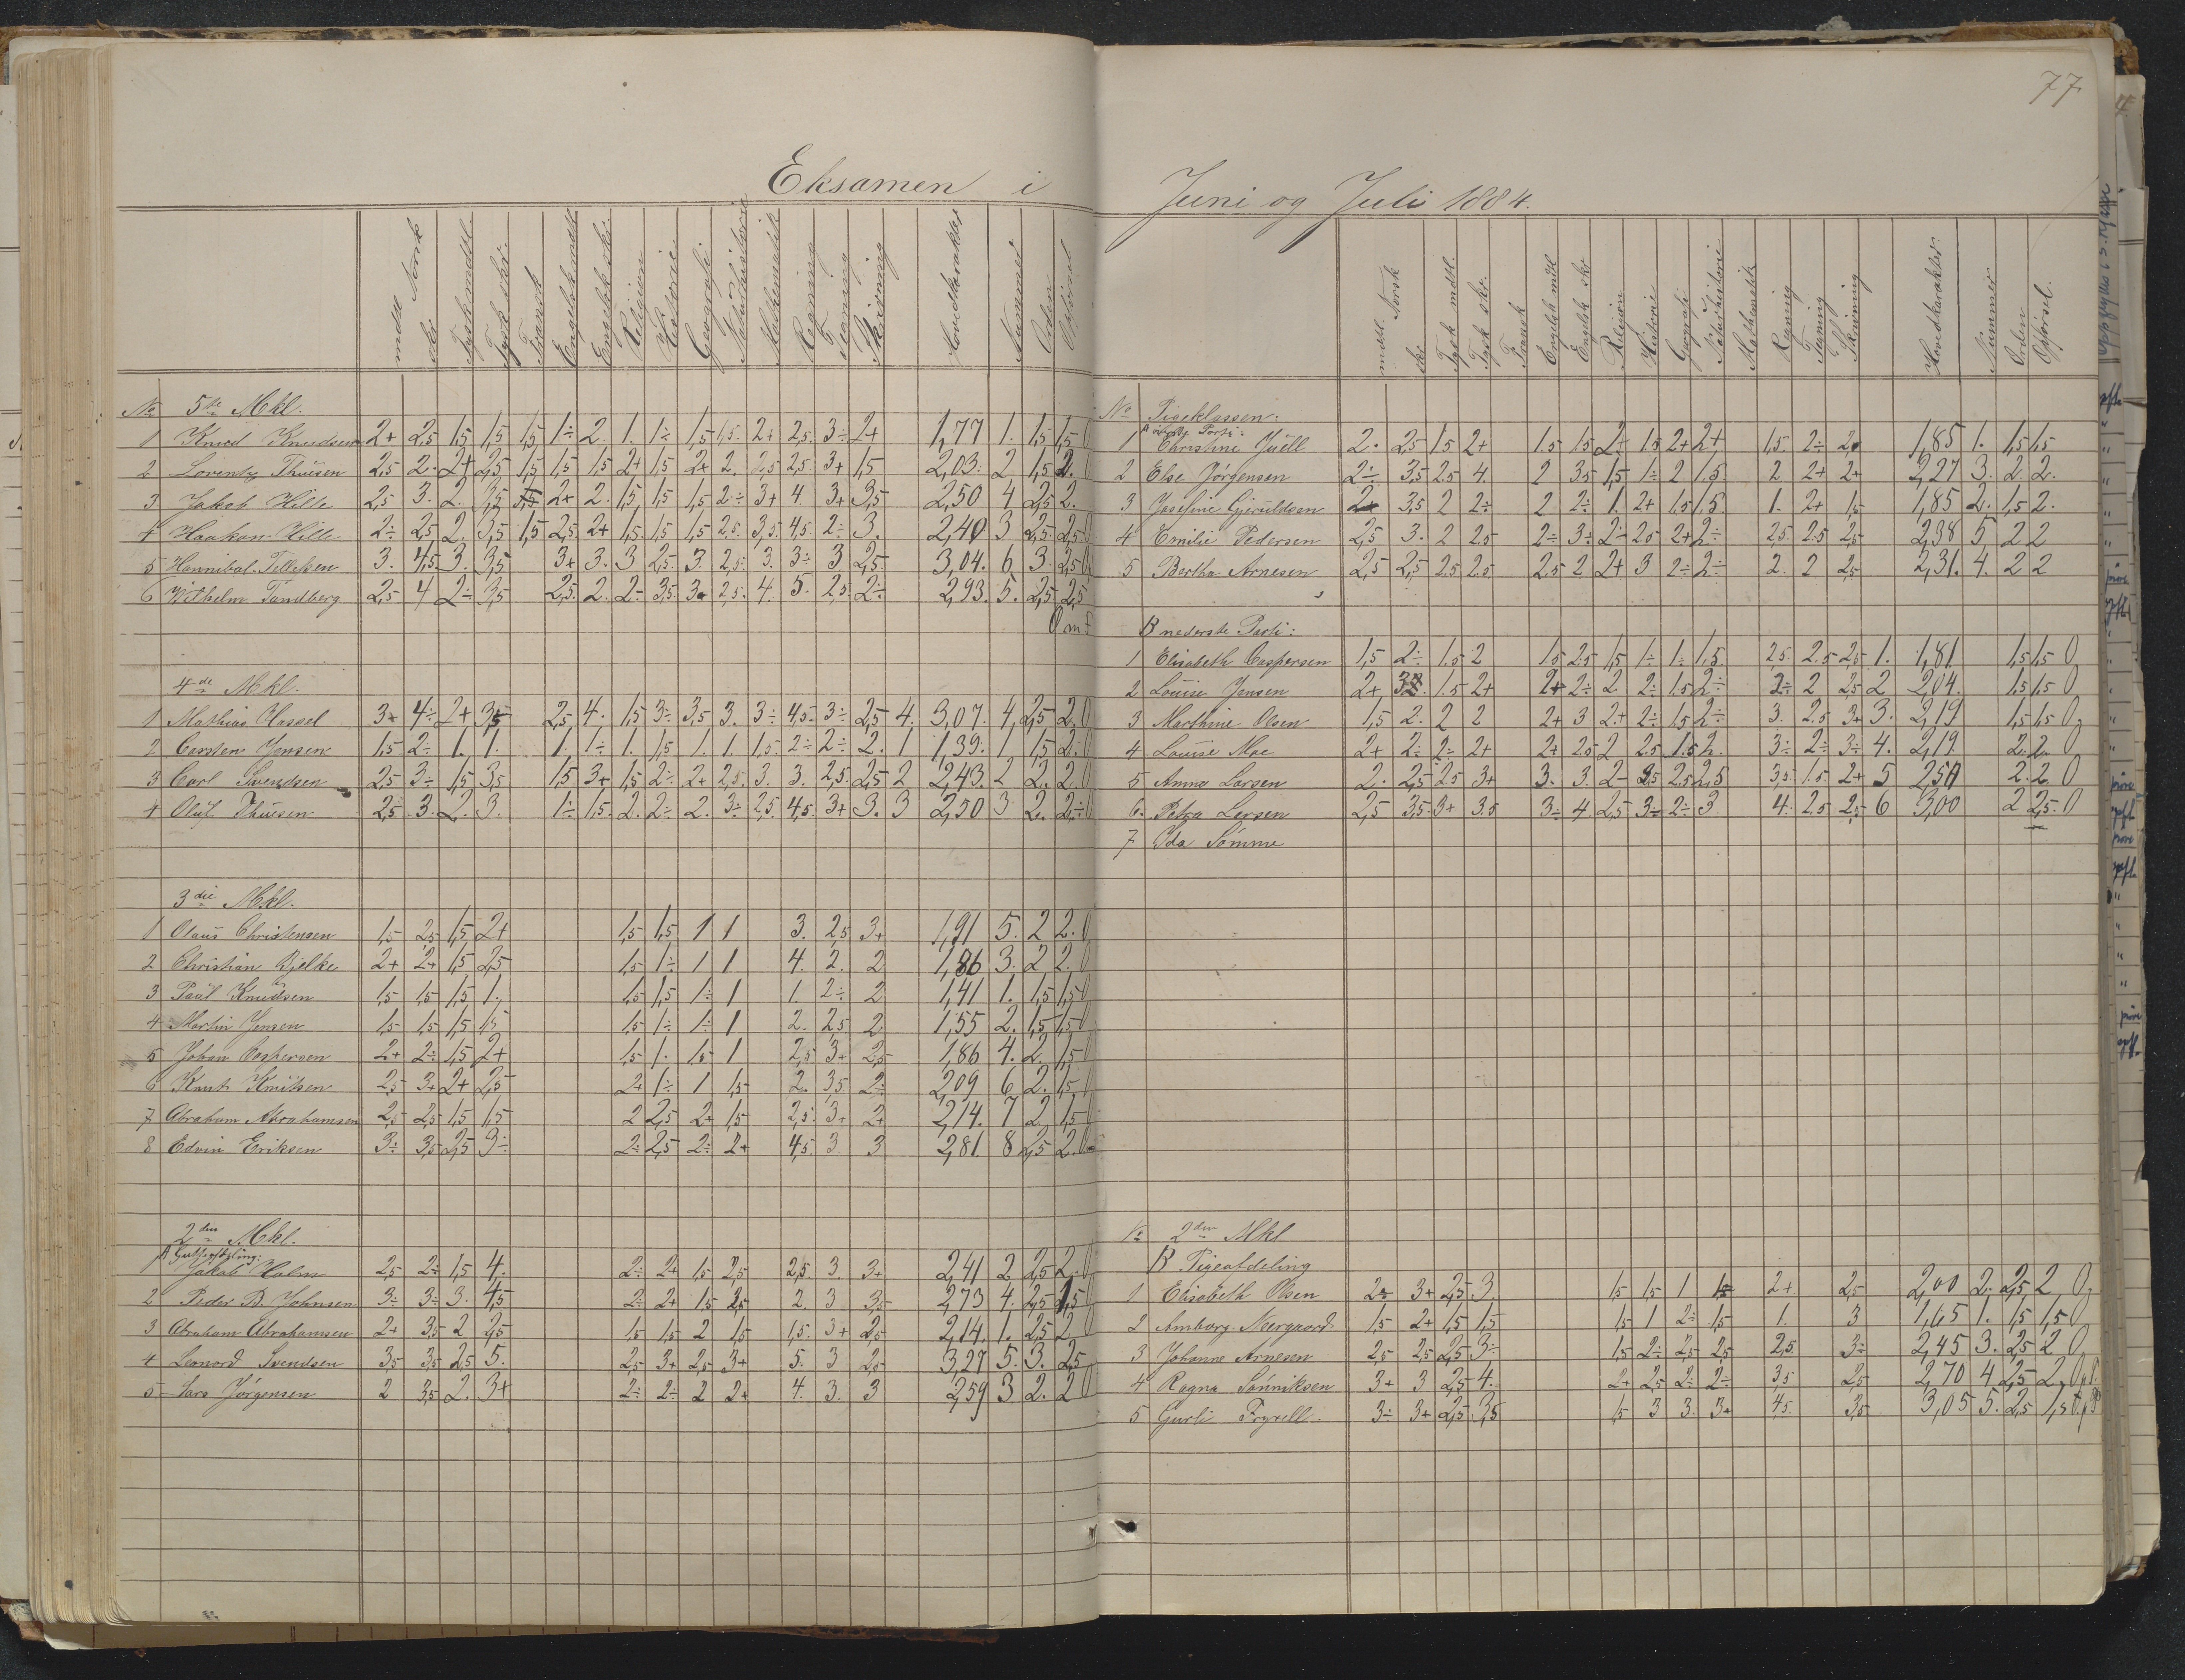 77
Eksamen i
mdtl Norsk skr. Tysk mdtl. Tysk skr. Fransk Engelsk mdtl Engelsk skr. Religion Historie Geografi Naturhistorie Mathematik Regning Tegning Skrivning Hovedkarakter Nummer Orden Opførsel
No 5te Mkl.
1 Knud Knudsen 2+ 2,5 1,5 1,5 1,5 1÷ 2. 1. 1÷ 1,5 1,5. 2+ 2,5. 3÷ 2+ 1,77 1. 1,5 1,5 0
2 Lorentz Thuesen 2,5 2. 2+ 2,5 1,5 1,5 1,5 2+ 1,5 2+ 2. 2,5 2,5 3+ 1,5 2,03. 2 1,5 2. 0
3 Jakob Hille 2,5 3. 2. 3,5 2+ 2. 1,5 1,5 1,5 2÷ 3+ 4. 3+ 3,5 2,50 4 2,5 2.
4 Haakon Hille 2÷ 2,5 2. 3,5 1,5 2,5 2+ 1,5 1,5 1,5 2,5. 3,5 4,5. 2÷ 3. 2,40 3 2,5 2,5
5 Hannibal Tellefsen 3. 4,5 3. 3,5 3+ 3. 3 2,5. 3. 2,5. 3. 3÷ 3 2,5. 3,04. 6 3. 2,5 0
6 Wilhelm Tandberg 2,5 4 2÷ 3,5 2,5. 2. 2÷ 3,5. 3+ 2,5. 4. 5. 2,5. 2÷. 2,93. 5. 2,5 2,5
4de Mkl.
1 Mathias Hassel 3+ 4÷ 2+ 3,5 2,5 4. 1,5 3÷ 3,5 3. 3÷ 4,5. 3÷ 2,5 4. 3,07. 4. 2,5 2. 0
2 Carsten Jensen 1,5 2÷ 1. 1. 1. 1÷ 1. 1,5 1. 1. 1,5. 2÷ 2÷ 2. 1 1,39. 1 1,5 2. 0
3 Carl Svendsen 2,5 3÷ 1,5 3,5 1,5 3+ 1,5 2÷ 2+ 2,5. 3. 3. 2,5. 2,5 2 2,43. 2 2. 2. 0
4 Oluf Thuesen 2,5 3. 2. 3. 1÷ 1,5. 2. 2÷ 2. 3÷ 2,5. 4,5. 3+ 3. 3 2,50 3 2. 2÷ 0
3die Mkl.
1 Olaus Christensen 1,5 2,5 1,5 2+ 1,5 1,5 1 1 3. 2,5 3+ 1,91 5. 2 2. 0
2 Christian Bjelke 2+ 2+ 1,5 2,5 1,5 1÷ 1 1 4. 2. 2 1,86 3. 2 2. 0
3 Paul Knudsen 1,5 1,5 1,5 1. 1,5 1,5 1÷ 1 1. 2÷ 2 1,41 1. 1,5 1,5 0
4 Martin Jensen 1,5 1,5 1,5 1,5 1,5 1÷ 1÷ 1 2. 2,5 2 1,55 2. 1,5 1,5 0
5 Johan Caspersen 2+ 2÷ 1,5 2+ 1,5 1. 1,5 1 2,5 3+ 2,5 1,86 4. 2. 1,5 0
6 Knut Knutsen 2,5 3+ 2+ 2,5 2+ 1÷ 1 1,5 2. 3,5 2÷ 2,09 6 2. 1,5 0
7 Abraham Abrahamsen 2,5 2,5 1,5 1,5 2 2,5 2+ 1,5 2,5. 3+ 2+ 2,14. 7 2 1,5 0
8 Edvin Eriksen 3÷ 3,5 2,5 3÷ 2÷ 2,5 2÷ 2+ 4,5. 3 3 2,81. 8 2,5 2. 0
2den Mkl.
A Gutteafdeling:
1 Jakob Holm 2,5 2÷ 1,5 4. 2÷ 2+ 1,5 2,5 2,5. 3. 3+ 2,41 2 2,5 2. 0
2 Peder B. Johnsen 3÷ 3÷ 3. 4,5 2÷ 2+ 1,5 2,5 2. 3 3,5 2,73 4. 2,5 1,5 0
3 Abraham Abrahamsen 2+ 3,5 2 2,5 1,5 1,5 2 1,5 1,5. 3+ 2,5 2,14. 1. 2,5 2 0
4 Leonard Svendsen 3,5 3,5 2,5 5. 2,5 3+ 2,5 3+ 5. 3 2,5 3,27 5. 3. 2,5
5 Lars Jørgensen 2 3,5 2. 3+ 2÷ 2÷ 2 2+ 4. 3. 3 2,59 3 2. 2 0
Juni og Juli 1884.
mdtl. Norsk skr Tysk mdtl. Tysk skr. Fransk Engelsk mdtl Engelsk skr Religion Historie Geografi Naturhistorie Mathematik Regning Tegning Skrivning Hovedkarakter. Nummer Orden Opførsel.
No Pigeklassen:
A øverste Parti:
1 Christine Juell 2. 2,5 1.5 2+ 1.5 1.5 2+ 1.5 2+ 2+ 1,5. 2÷ 2. 1,85 1. 1,5 1,5
2 Else Jørgensen 2÷ 3,5 2.5 4. 2 3.5 1,5 1÷ 2 1.5. 2 2+ 2+ 2,27 3. 2. 2.
3 Josefine Gjeruldsen 2+ 3,5 2 2÷ 2 2÷ 1. 2+ 1.5 1.5. 1. 2+ 1,5 1,85 2. 1,5 2.
4 Emilie Pedersen 2,5 3. 2 2.5 2÷ 3÷ 2÷ 2.5 2+ 2÷ 2.5. 2.5 2,5 2,38 5 2 2
5 Bertha Arnesen 2,5 2,5 2.5 2.5 2.5 2 2+ 3 2÷ 2÷ 2. 2 2,5 2,31. 4. 2 2
B nederste Parti:
1 Elisabeth Caspersen 1,5 2÷ 1.5 2 1.5 2.5 1,5 1÷ 1÷ 1,5. 2,5. 2.5 2,5 1. 1,81. 1,5 1,5 0
2 Louise Jensen 2+ 1.5 2+ 2+ 2÷ 2 2÷ 1.5 2÷ 2÷ 2 2,5 2 2,04. 1,5 1,5 0
3 Marthine Olsen 1,5 2. 2 2 2+ 3 2+ 2÷ 1.5 2÷ 3. 2.5 3+ 3. 2,19 1,5 1,5 0
4 Louise Moe 2+ 2÷ 2÷ 2+ 2+ 2.5 2 2.5 1.5 2. 3÷ 2÷ 3÷ 4. 2,19. 2. 2. 0
5 Anna Larsen 2. 2,5 2.5 3+ 3. 3. 2÷ 2.5 2,5 3,5. 1.5 2+ 5 2. 2 0
6. Petra Larsen 2,5 3.5 3+ 3.5 3÷ 4 2,5 3÷ 2÷ 3 4. 2.5 2,5 6 3,00 2 2,5. 0
7 Ida Sømme
No 2den Mkl
B Pigeafdeling
1 Elisabeth Olsen 2÷ 3+ 2,5 3. 1,5 1,5 1 1,5 2+ 2,5 2,00 2. 2,5 2 0
2 Amborg Neergaard 1,5 2+ 1,5 1,5 1,5 1 2÷ 1,5 1. 3 1,65 1. 1,5 1,5 0
3 Johanne Arnesen 2,5 2,5 2,5 3÷ 1,5 2÷ 2,5 2,5 2,5 3÷ 2,45 3. 2,5 2 0
4 Ragna Sønniksen 3+ 3 2,5 4. 2+ 2,5 2÷ 2÷ 3,5 2,5 2,70 4 2,5 2
5 Gurli Fryxell 3÷ 3+ 2,5 3,5 1,5 3 3. 3+ 4,5. 3,5 3,05 5. 2,5 1,5